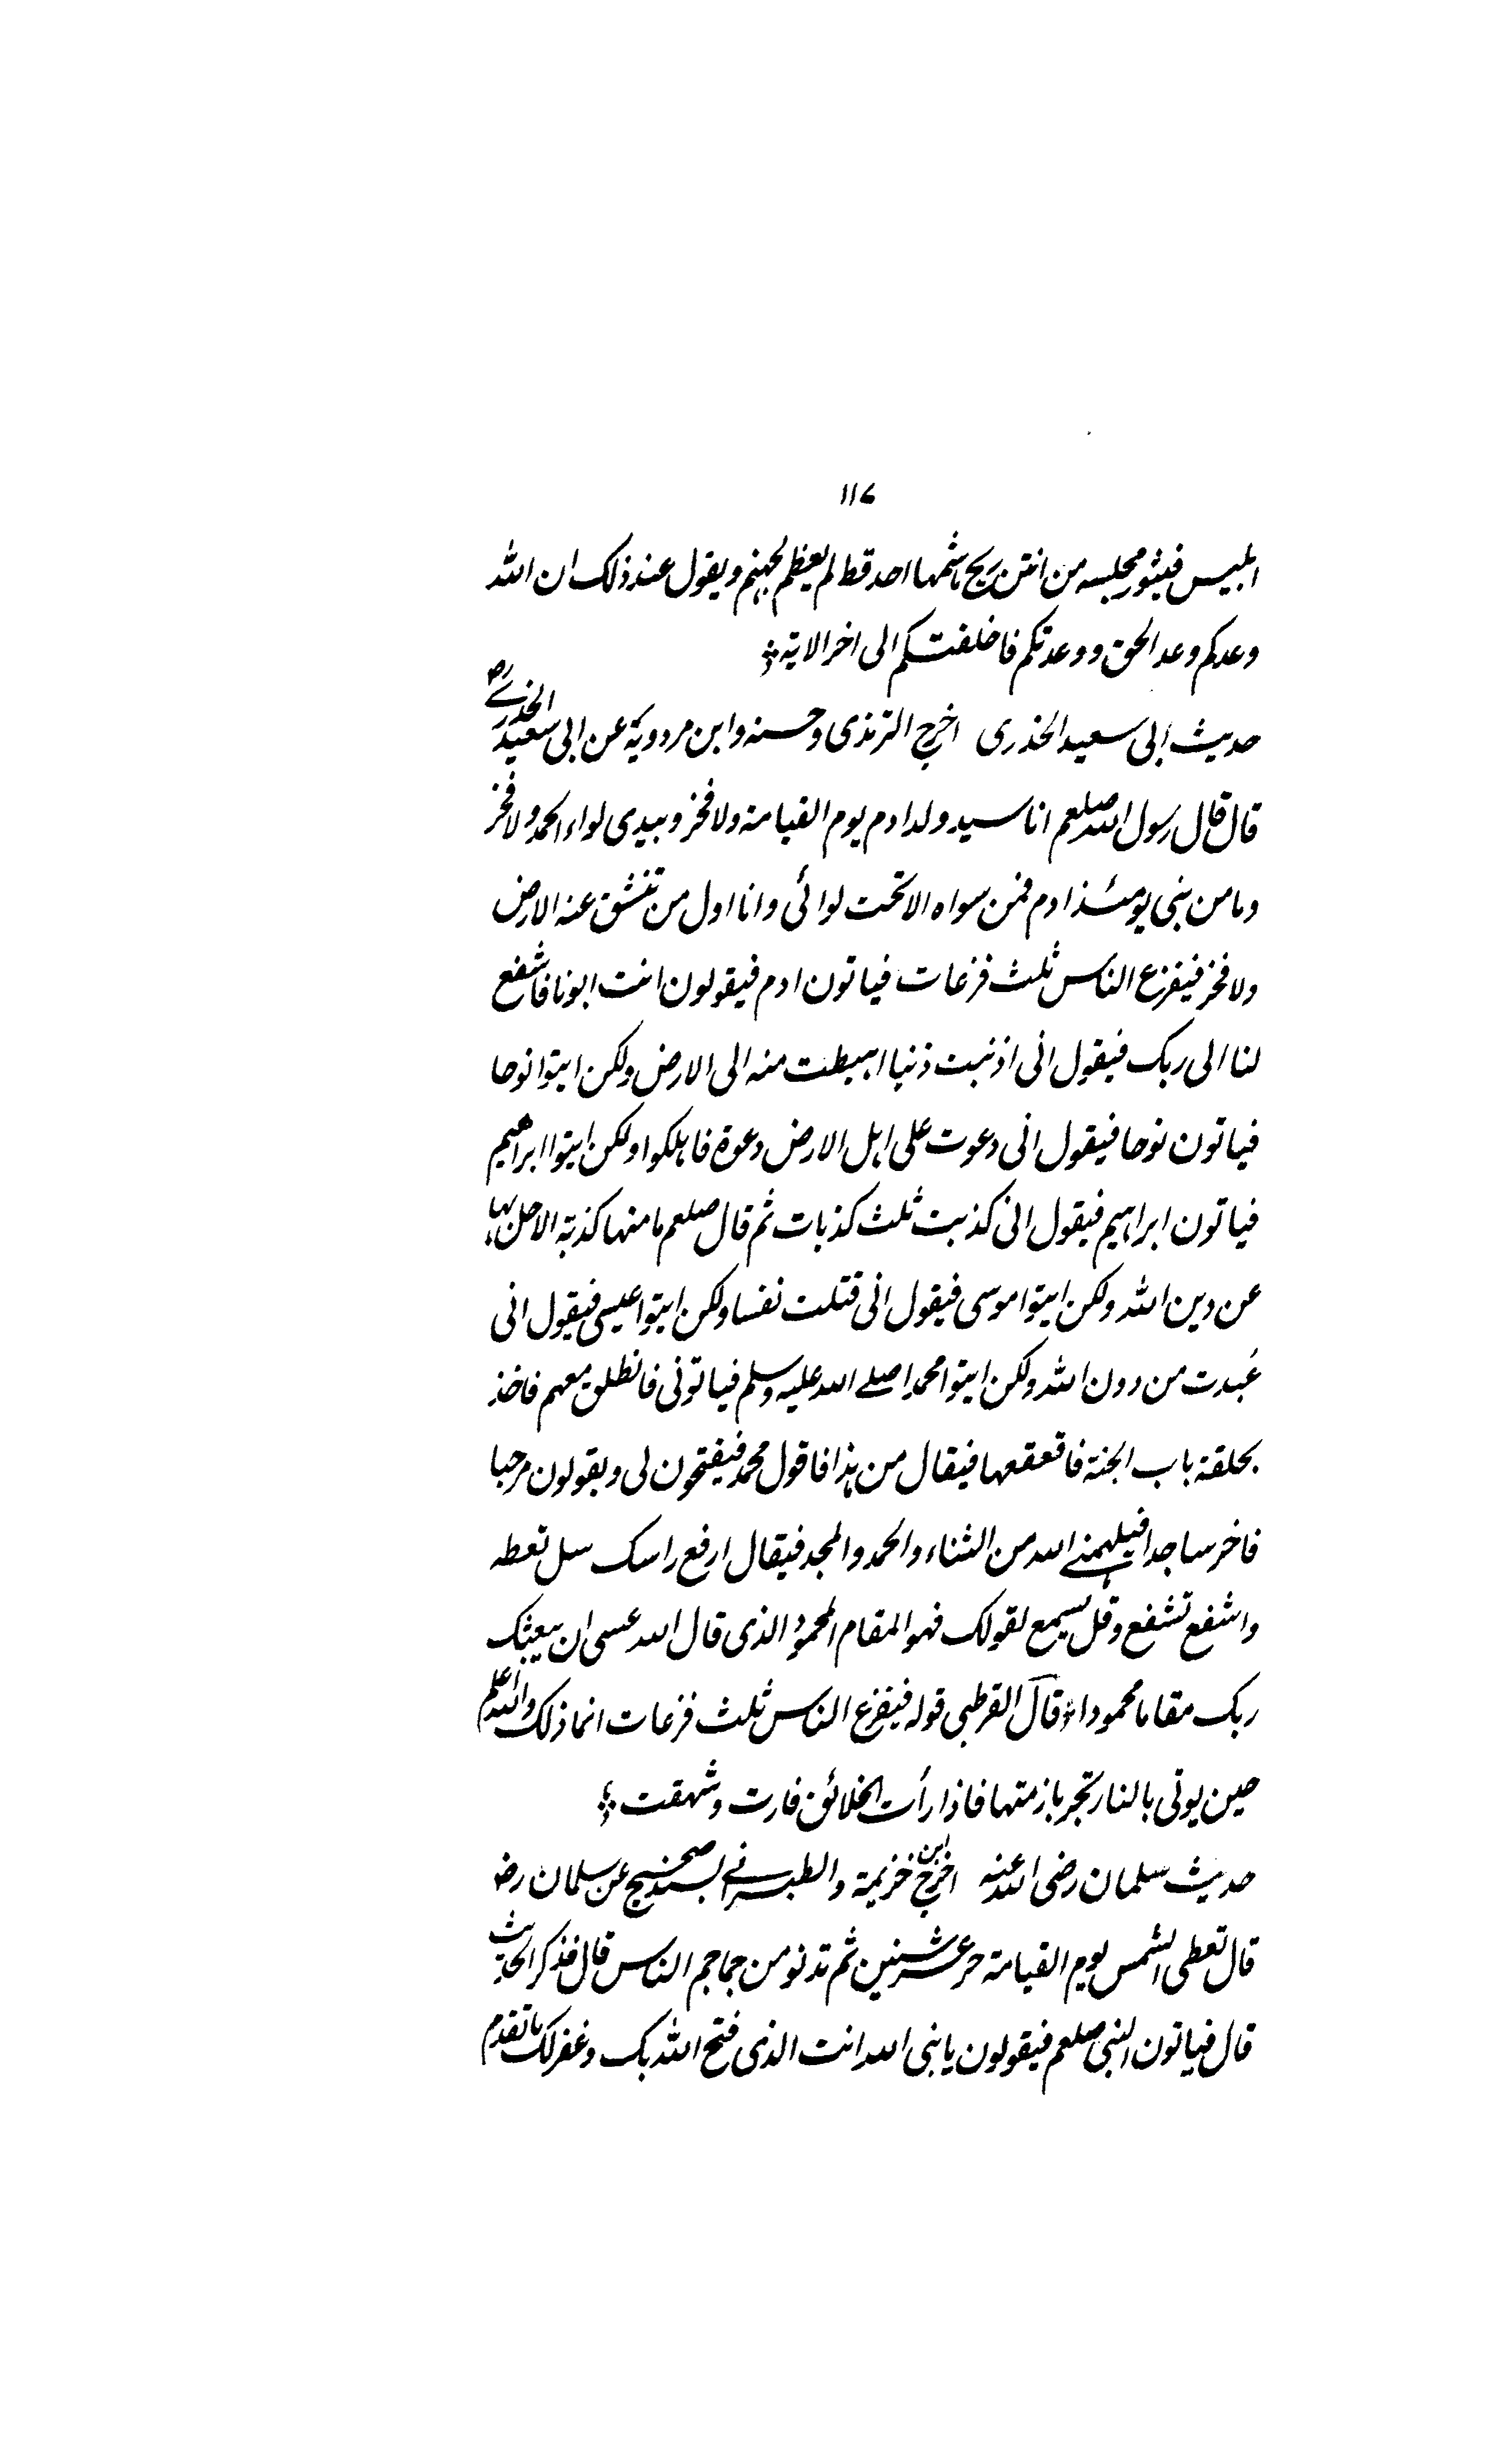 ۱۱۷
ابلیس فیثور مجلسه من انتن ریح ما شمها احد قط لم یعظم لجهنم ویقول عند ذلک ان الله
وعدکم وعد الحق ووعدتکم فاخلفتکم الی اخر الایة
حدیث ابی سعید الخذری اخرج الترمذی وحسنه وابن مردویة عن ابی سعید الخذری رض
قال قال رسول الله صلعم انا سید ولد ادم یوم القیامة ولا فخر وبیدی لواء الحمد ولا فخر
وما من نبی یومئذ ادم فمن سواه الا تحت لوائی وانا اول من تنشق عنه الارض
ولا فخر فیفزع الناس ثلث فزعات فیاتون ادم فیقولون انت ابونا فاشفع
لنا الی ربک فیقول انی اذنبت ذنبا اهبطت منه الی الارض ولکن ایتوا نوحا
فیاتون نوحا فیقول انی دعوت علی اهل الارض دعوة فاهلکوا ولکن ایتوا ابراهیم
فیاتون ابراهیم فیقول انی کذبت ثلث کذبات ثم قال صلعم ما منها کذبة الا حل بها
عن دین الله ولکن ایتوا موسی فیقول انی قتلت نفسا ولکن ایتوا عیسی فیقول انی
عُبدت من دون الله ولکن ایتوا محمدا صلے الله علیه وسلم فیاتونی فانطلق معهم فاخذ
بحلقة باب الجنة فاقعقعها فیقال من هذا فاقول محمد فیفتحون لی ویقولون مرحبا
فاخر ساجدا فیلهمنے الله من الثناء والحمد والمجد فیقال ارفع راسک سل تعطه
واشفع تشفع وقل یسمع لقولک فهو المقام المحمود الذی قال الله عسی ان یبعثک
ربک مقاما محمودا قال القرطبی قوله فیفزع الناس ثلث فزعات انما ذلک والله اعلم
حین یوتی بالنار تجر بازمتها فاذا رأت الخلائق فارت وشهقت
حدیث سلمان رضی الله عنه اخرج ابن خزیمة والطبرانے بسند صحیح عن سلمان رض
قال تعطی الشمس یوم القیامة حر عشر سنین ثم تدنو من جماجم الناس قال فذکر الحدیث
قال فیاتون النبی صلعم فیقولون یا نبی الله انت الذی فتح الله بک وغفر لک ما تقدم